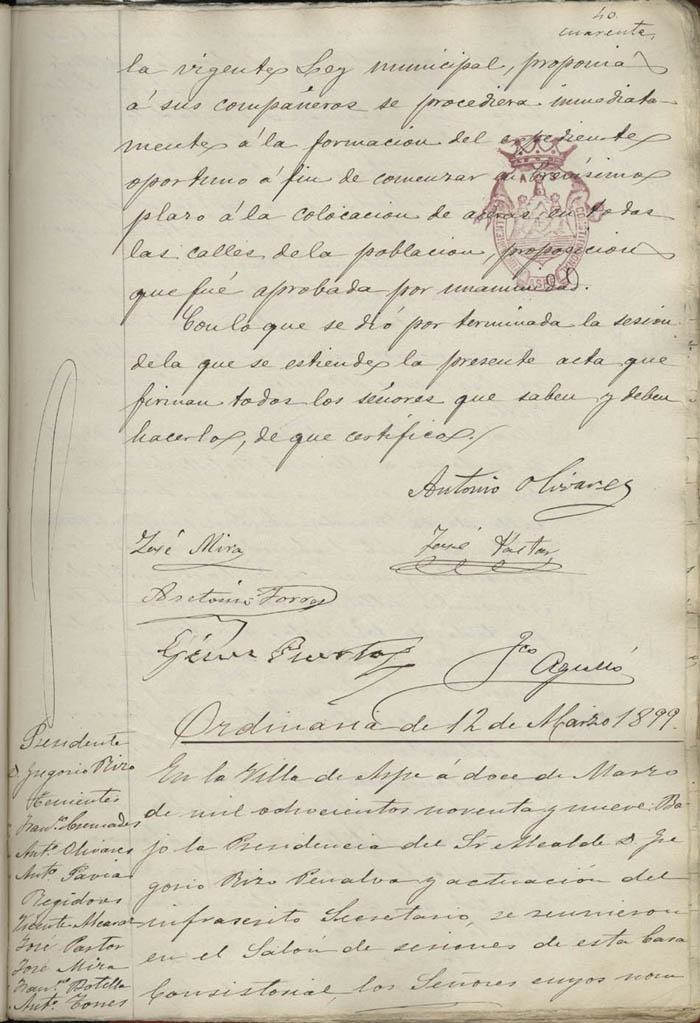 40.
cuarenta
la vigente Ley municipal, proponia
á sus compañeros se procediera inmediata-
mente á la formacion del expediente
oportuno á fin de comenzar en brevísimo
plazo á la colocacion de aceras en todas
las calles de la poblacion, proposicion
que fué aprobada por unanimidad.
Con lo que se dió por terminada la sesion
de la que se estiende la presente acta que
firman todos los señores que saben y deben
hacerlo, de que certifico./
Antonio Olivares
José Mira
José Pastor
Antonio Torres
Puerto
Fco Agulló
Ordinaria de 12 de Marzo 1899.
Presidente
D. Gregorio Rizo
Tenientes
Franco. Cremades
Anto. Olivares
Anto. Pavia
Regidores
Vicente Alcaraz
José Pastor
José Mira
Franco. Botella
Anto. Torres
En la Villa de Aspe á doce de Marzo
de mil ochocientos noventa y nueve. Ba-
jo la Presidencia del Sr Alcalde D. Gre-
gorio Rizo Penalva y actuación del
infrascrito Secretario, se reunieron
en el Salon de sesiones de esta Casa
Consistorial, los Señores cuyos nom